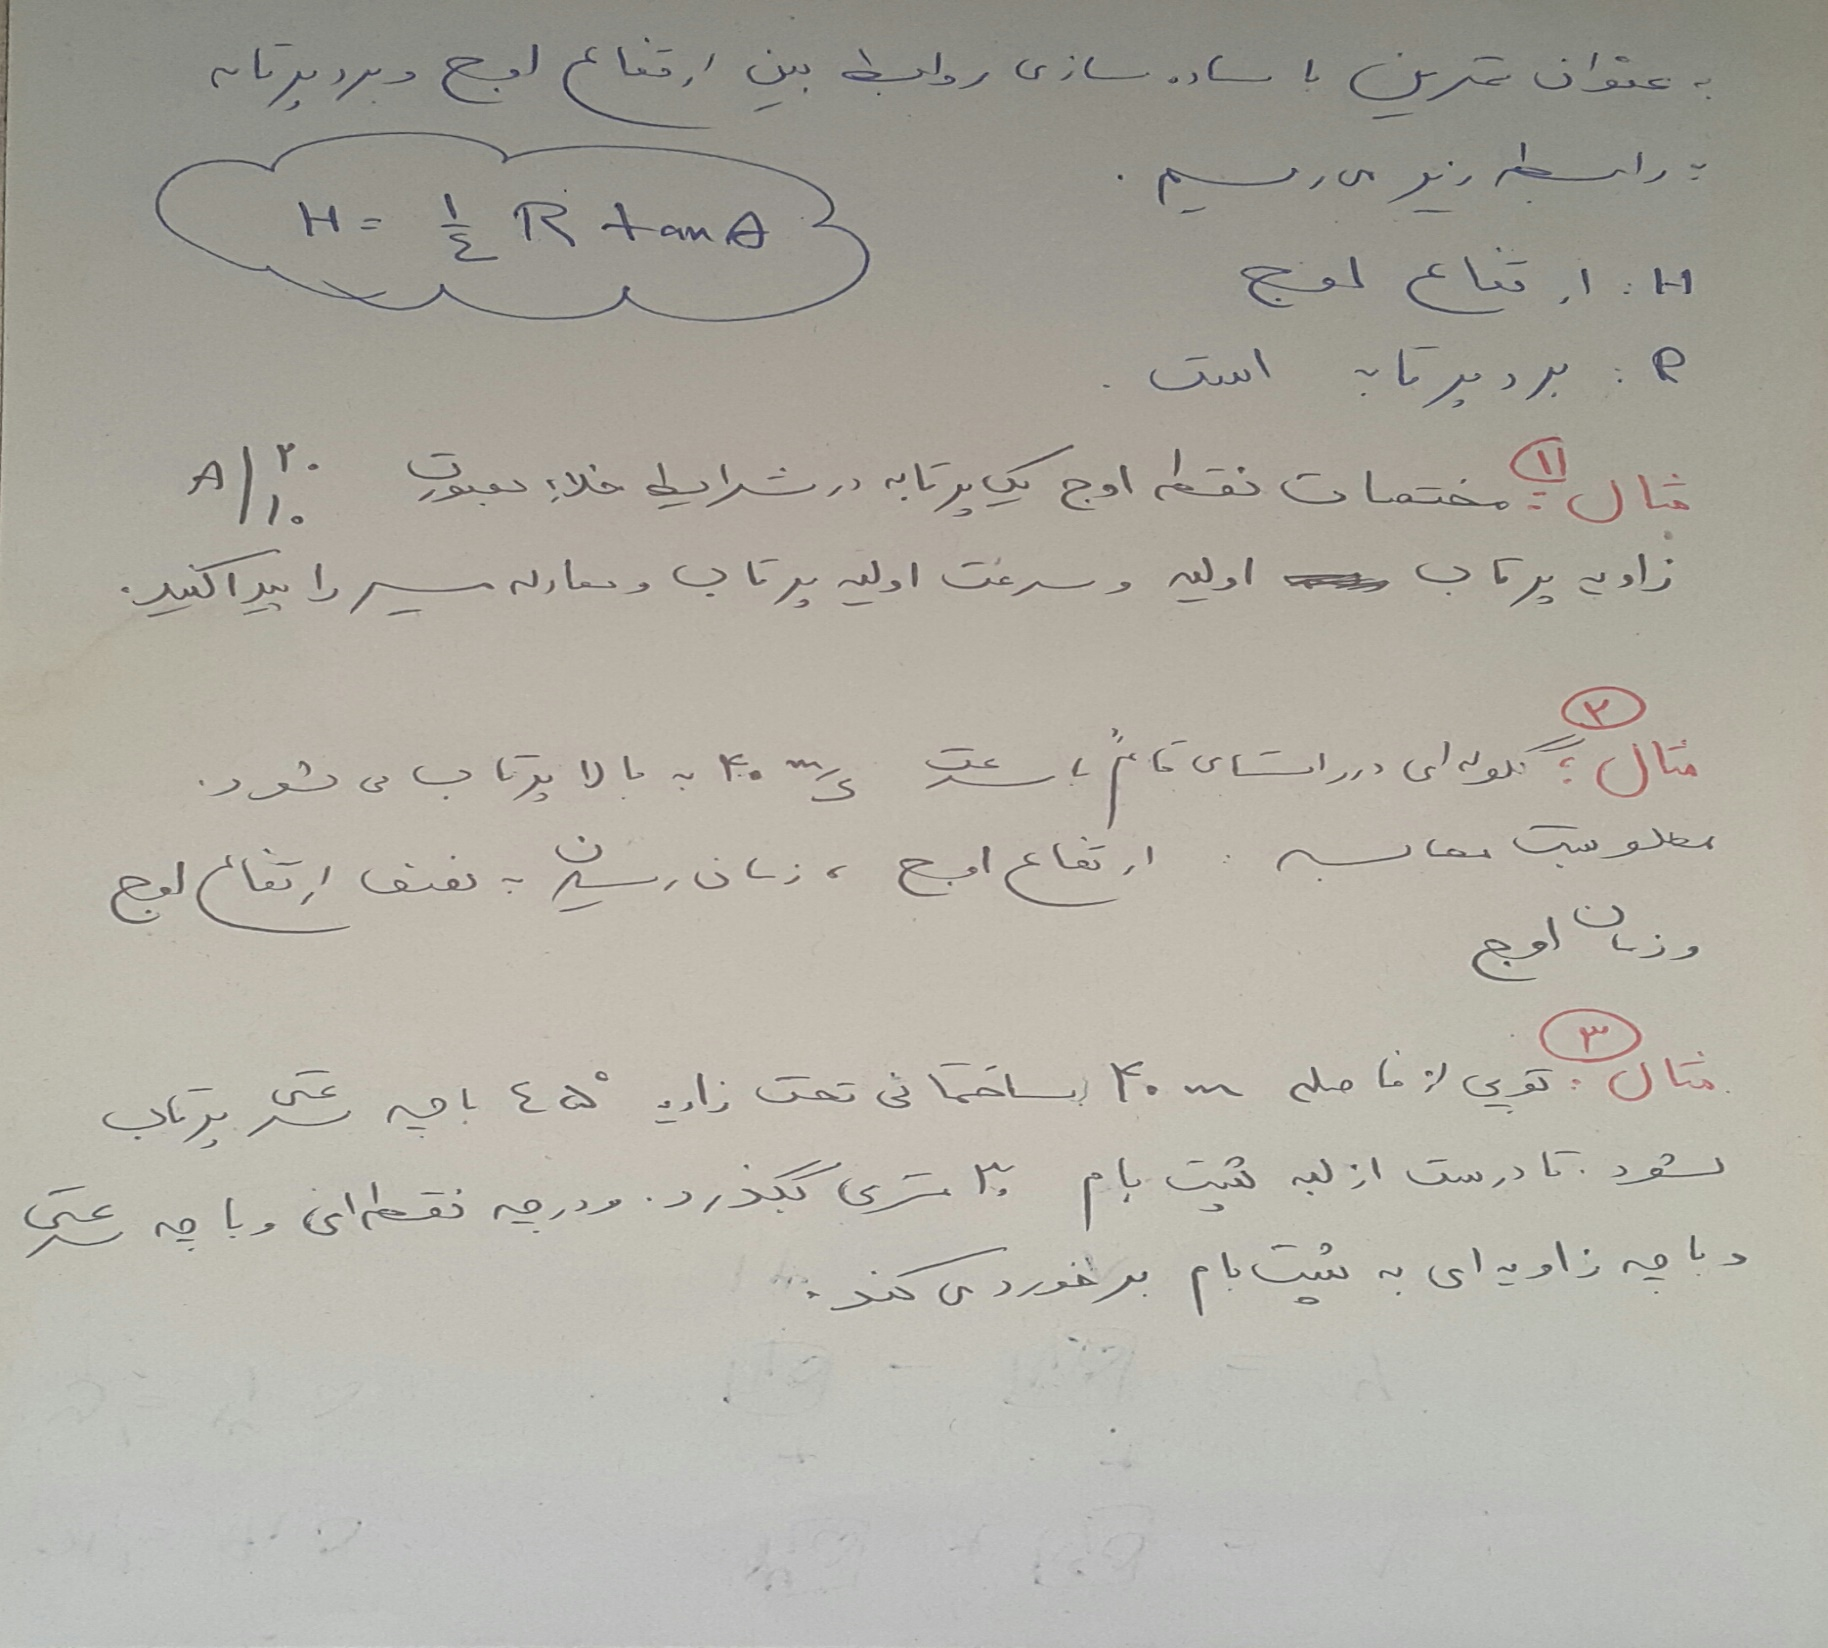 به عنوان تمرین با ساده سازی روابط بین ارتفاع اوج و برد پرتابه
به رابطه زیر می رسیم .
H = ۱/٤ R tan θ
H : ارتفاع اوج
R : برد پرتابه است .
مثال ۱: مختصات نقطه اوج یک پرتابه در شرایط خلاء بصورت A | ۲۰ ۱۰
زاویه پرتاب اولیه و سرعت اولیه پرتاب و معادله مسیر را پیدا کنید.
مثال ۲: گلوله ای در راستای قائم با سرعت ۴۰ m/s به بالا پرتاب می شود.
مطلوبست محاسبه : ارتفاع اوج ، زمان رسیدن به نصف ارتفاع اوج
و زمان اوج
مثال ۳: توپی از فاصله ۴۰ m ساختمانی تحت زاویه ٤٥° با چه سرعتی پرتاب
شود . تا درست از لبه پشت بام ۳۰ متری بگذرد. و در چه نقطه ای و با چه سرعتی
و با چه زاویه ای به پشت بام برخورد می کند.